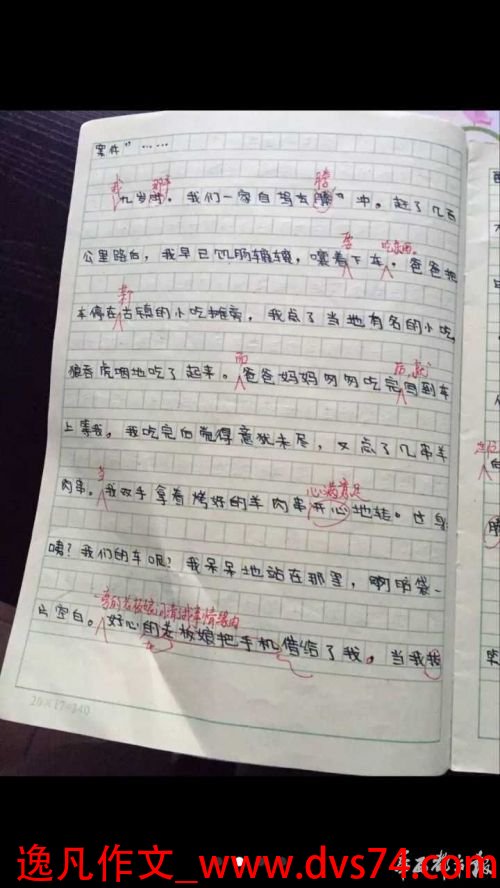 案件”……
我 那年
九岁时，我们一家自驾去腾冲。赶了几百
腾
公里路后，我早已饥肠辘辘，嚷着下车。爸爸把
要 吃东西
车停在古镇的小吃摊旁，我点了当地有名的小吃，
狼吞虎咽地吃了起来。爸爸妈妈匆匆吃完回到车
而 后，就
上等我。我吃完后觉得意犹未尽，又点了几串羊
肉串。我双手拿着烤好的羊肉串开心地转。
当 心满意足
咦？我们的车呢？我呆呆地站在那里，脑袋一
片空白。好心的老板娘把手机借给了我。当我
一旁的老板娘问清事情缘由
20×17=340
逸凡作文_www.dvs74.com